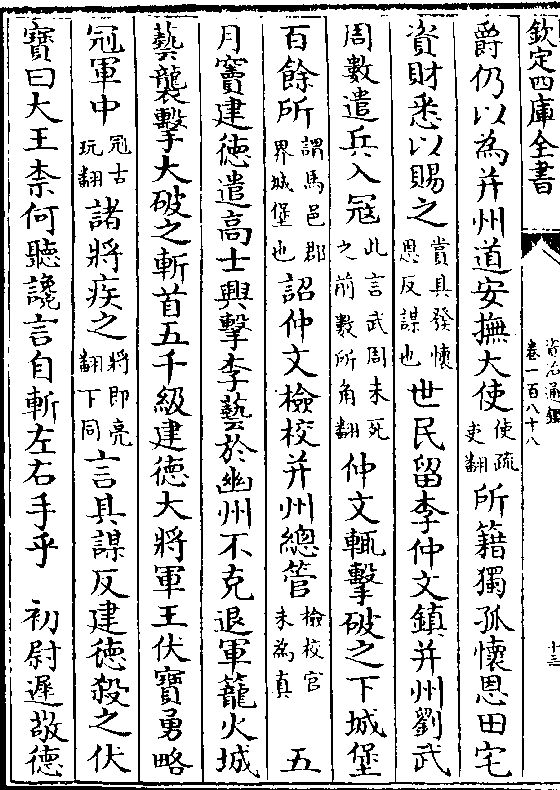 欽定四庫全書
資治通鑑
卷一百八十八
十三
爵仍以為并州道安撫大使使疏吏翻所籍獨孤懷恩田宅
資財悉以賜之賞其發懷恩反謀也世民留李仲文鎮并州劉武
周數遣兵入冦此言武周未死之前數所角翻仲文輒擊破之下城堡
百餘所謂馬邑郡界城堡也詔仲文檢校并州總管檢校官未為真五
月竇建徳遣高士興擊李藝於幽州不克退軍籠火城
藝襲擊大破之斬首五千級建徳大將軍王伏寶勇略
冠軍中冠古玩翻諸將疾之將即亮翻下同言其謀反建徳殺之伏
寶曰大王柰何聽讒言自斬左右手乎　初尉遲敬徳